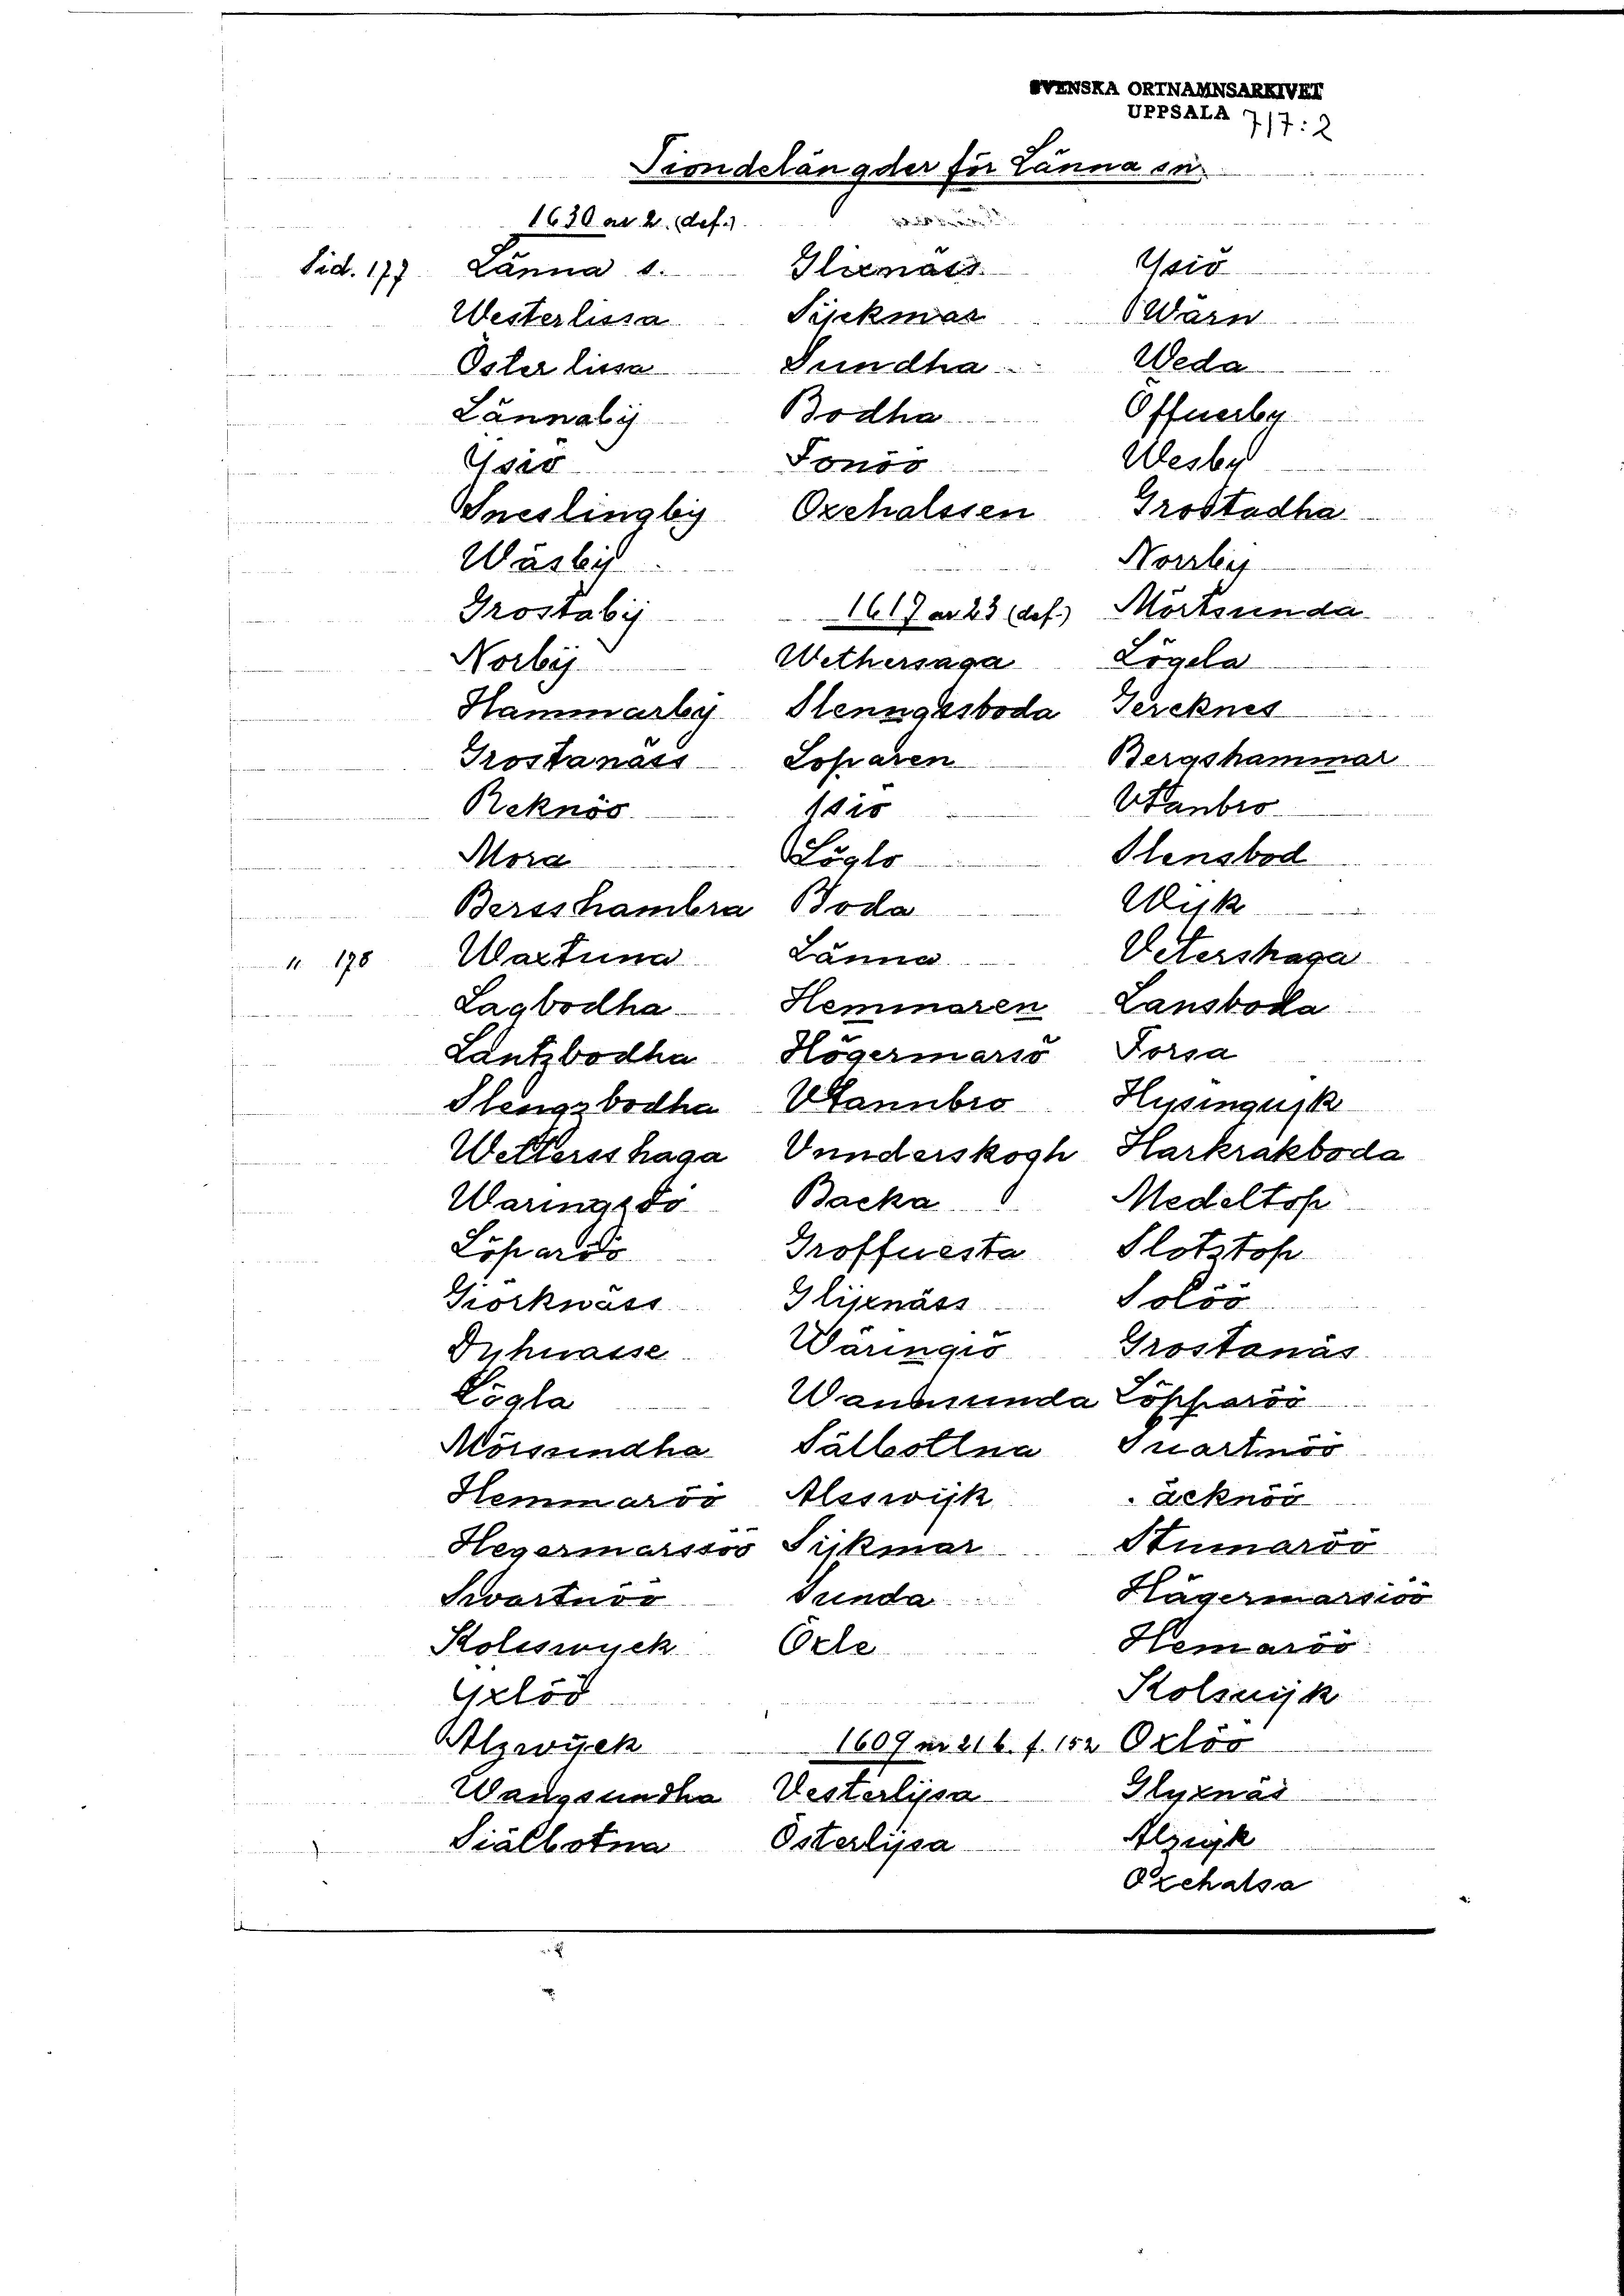 SVENSKA ORTNAMNSARKIVET
UPPSALA 717:2
Tiondelängder för Länna sn
1630 nr 2. (def.)
Sid. 177 Länna s.
Westerlissa
Österlissa
Lännabÿ
Ysiö
Sneslingbÿ
Wäsbÿ
Grostabÿ
Norbÿ
Hammarbÿ
Grostanäss
Reknöö
Mora
Bersshambra
" 178 Waxtuna
Lagbodha
Lantzbodha
Stengzbodha
Wettersshaga
Waringsö
Löparöö
Giörknäss
Dyhnässe
Lögla
Mörsundha
Hemmaröö
Hegermarssöö
Swartnöö
Kolsswyck
Gxlöö
Alzwÿck
Wangsundha
Siälbotna
Glixnäss
Sijckmar
Sundha
Bodha
Fonöö
Oxehalssen
1617 nr 23 (def.)
Wethersaga
Stenngasboda
Loparen
Isiö
Löglö
Boda
Länna
Hemmaren
Högermarsö
Vtannbro
Vnnderskogh
Backa
Groffuesta
Glijxnäss
Wäringiö
Wandsunda
Sälbottna
Alsswijk
Sijkmar
Sunda
Öxle
1609 nr 21 b. f. 152
Vesterlijsa
Österlijsa
Ysiö
Wärn
Weda
Öffuerby
Wesby
Grostadha
Norrbij
Mörtsunda
Lögela
Jercknes
Bergshammar
Vtanbro
Stensbod
Wijk
Vetershaga
Lansboda
Forsa
Hysinguik
Harkrakboda
Medeltop
Slotztop
Solöö
Grostanäs
Löpparöö
Suartnöö
. äcknöö
Stumaröö
Hägermarsiöö
Hemaröö
Kolsuijk
Oxlöö
Glyxnäs
Alzuijk
Oxehalsa